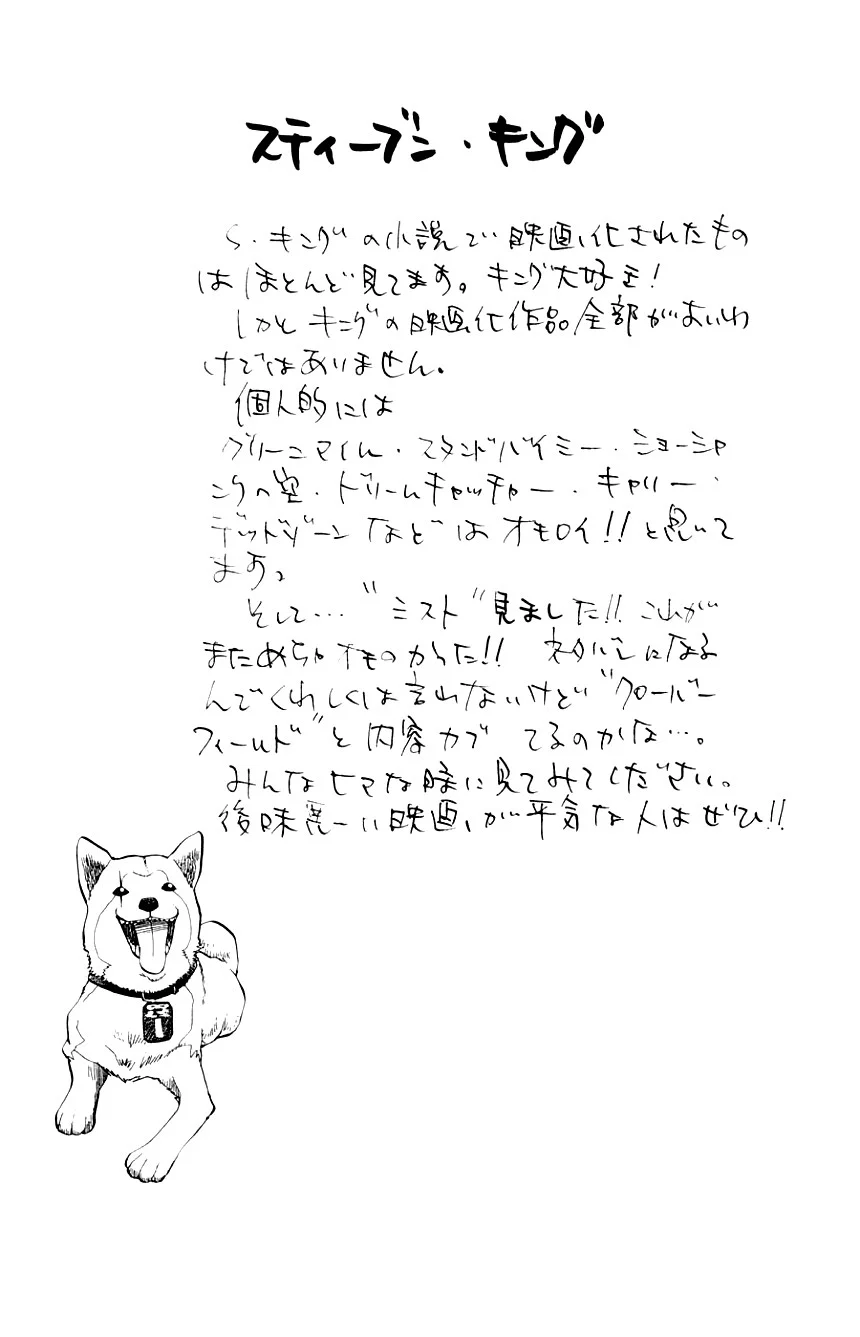 スティーブン・キング
S・キングの小説で映画化されたもの
はほとんど見てます。キング大好き!
しかしキングの映画化作品全部がよいわ
けではありません。
個人的には
グリーンマイル・スタンドバイミー・ショーシャ
ンクの空・ドリームキャッチャー・キャリー・
デッドゾーンなどはオモロイ!!と思いて
ます。
そして…"ミスト"見ました!! これが
まためちゃオモのかった!! ネタバレになる
んでくわしくは言わないけど"クローバー
フィールド"と内容カブってるのかな…。
みんなヒマな時に見てみてください。
後味悪ーい映画が平気な人はぜひ!!